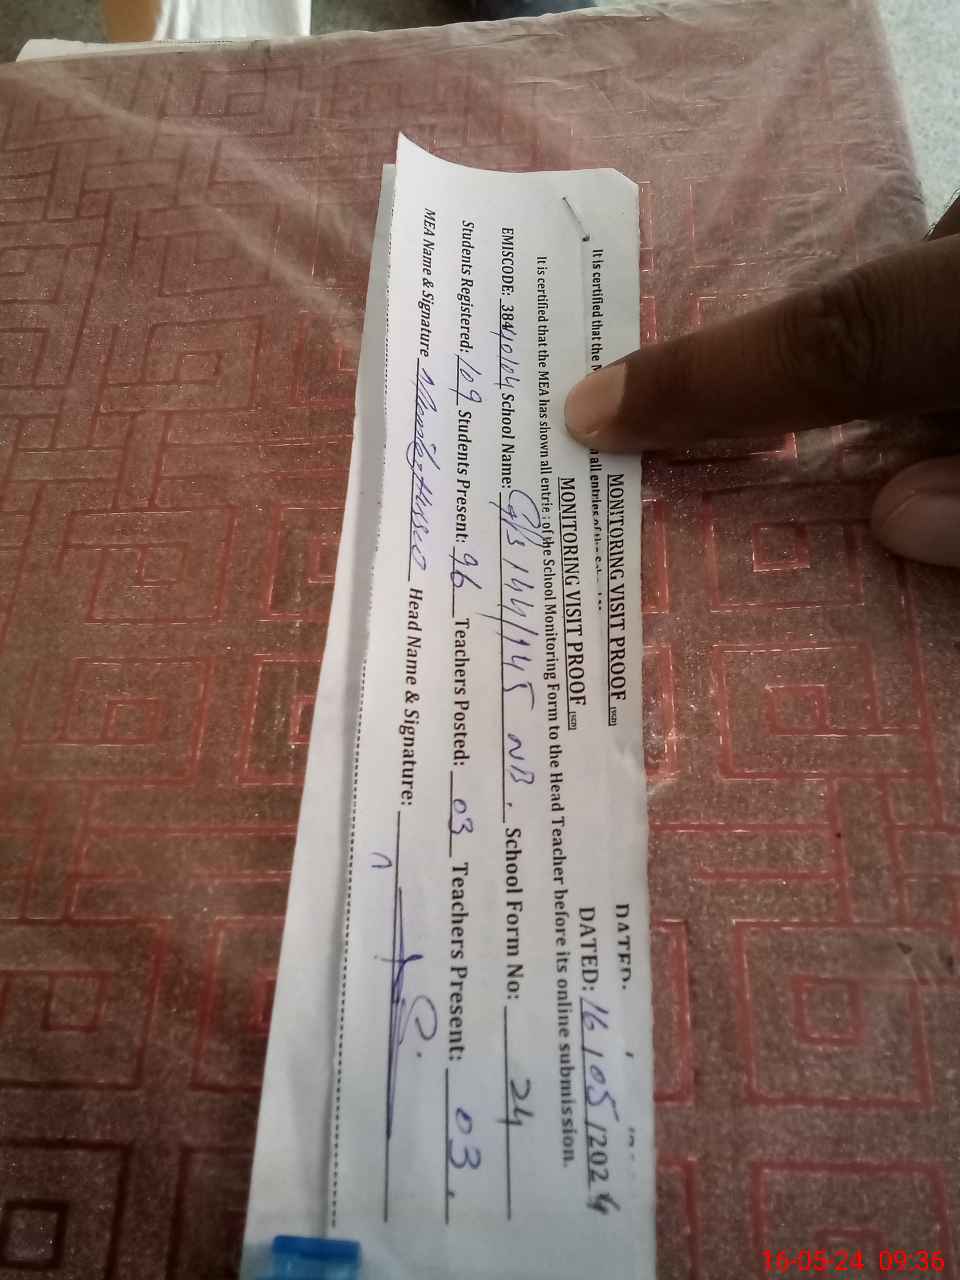 MONITORING VISIT PROOF (SGD)
DATED:
It is certified that the all entries of the
MONITORING VISIT PROOF (SGD)
DATED: 16/05/2024
It is certified that the MEA has shown all entries of the School Monitoring Form to the Head Teacher before its online submission.
EMISCODE: 38440104 School Name: G/s 144/145 NB. School Form No: 24
Students Registered: 109 Students Present: 96 Teachers Posted: 03 Teachers Present: 03.
MEA Name & Signature Head Name & Signature:
16-05-24 09:36